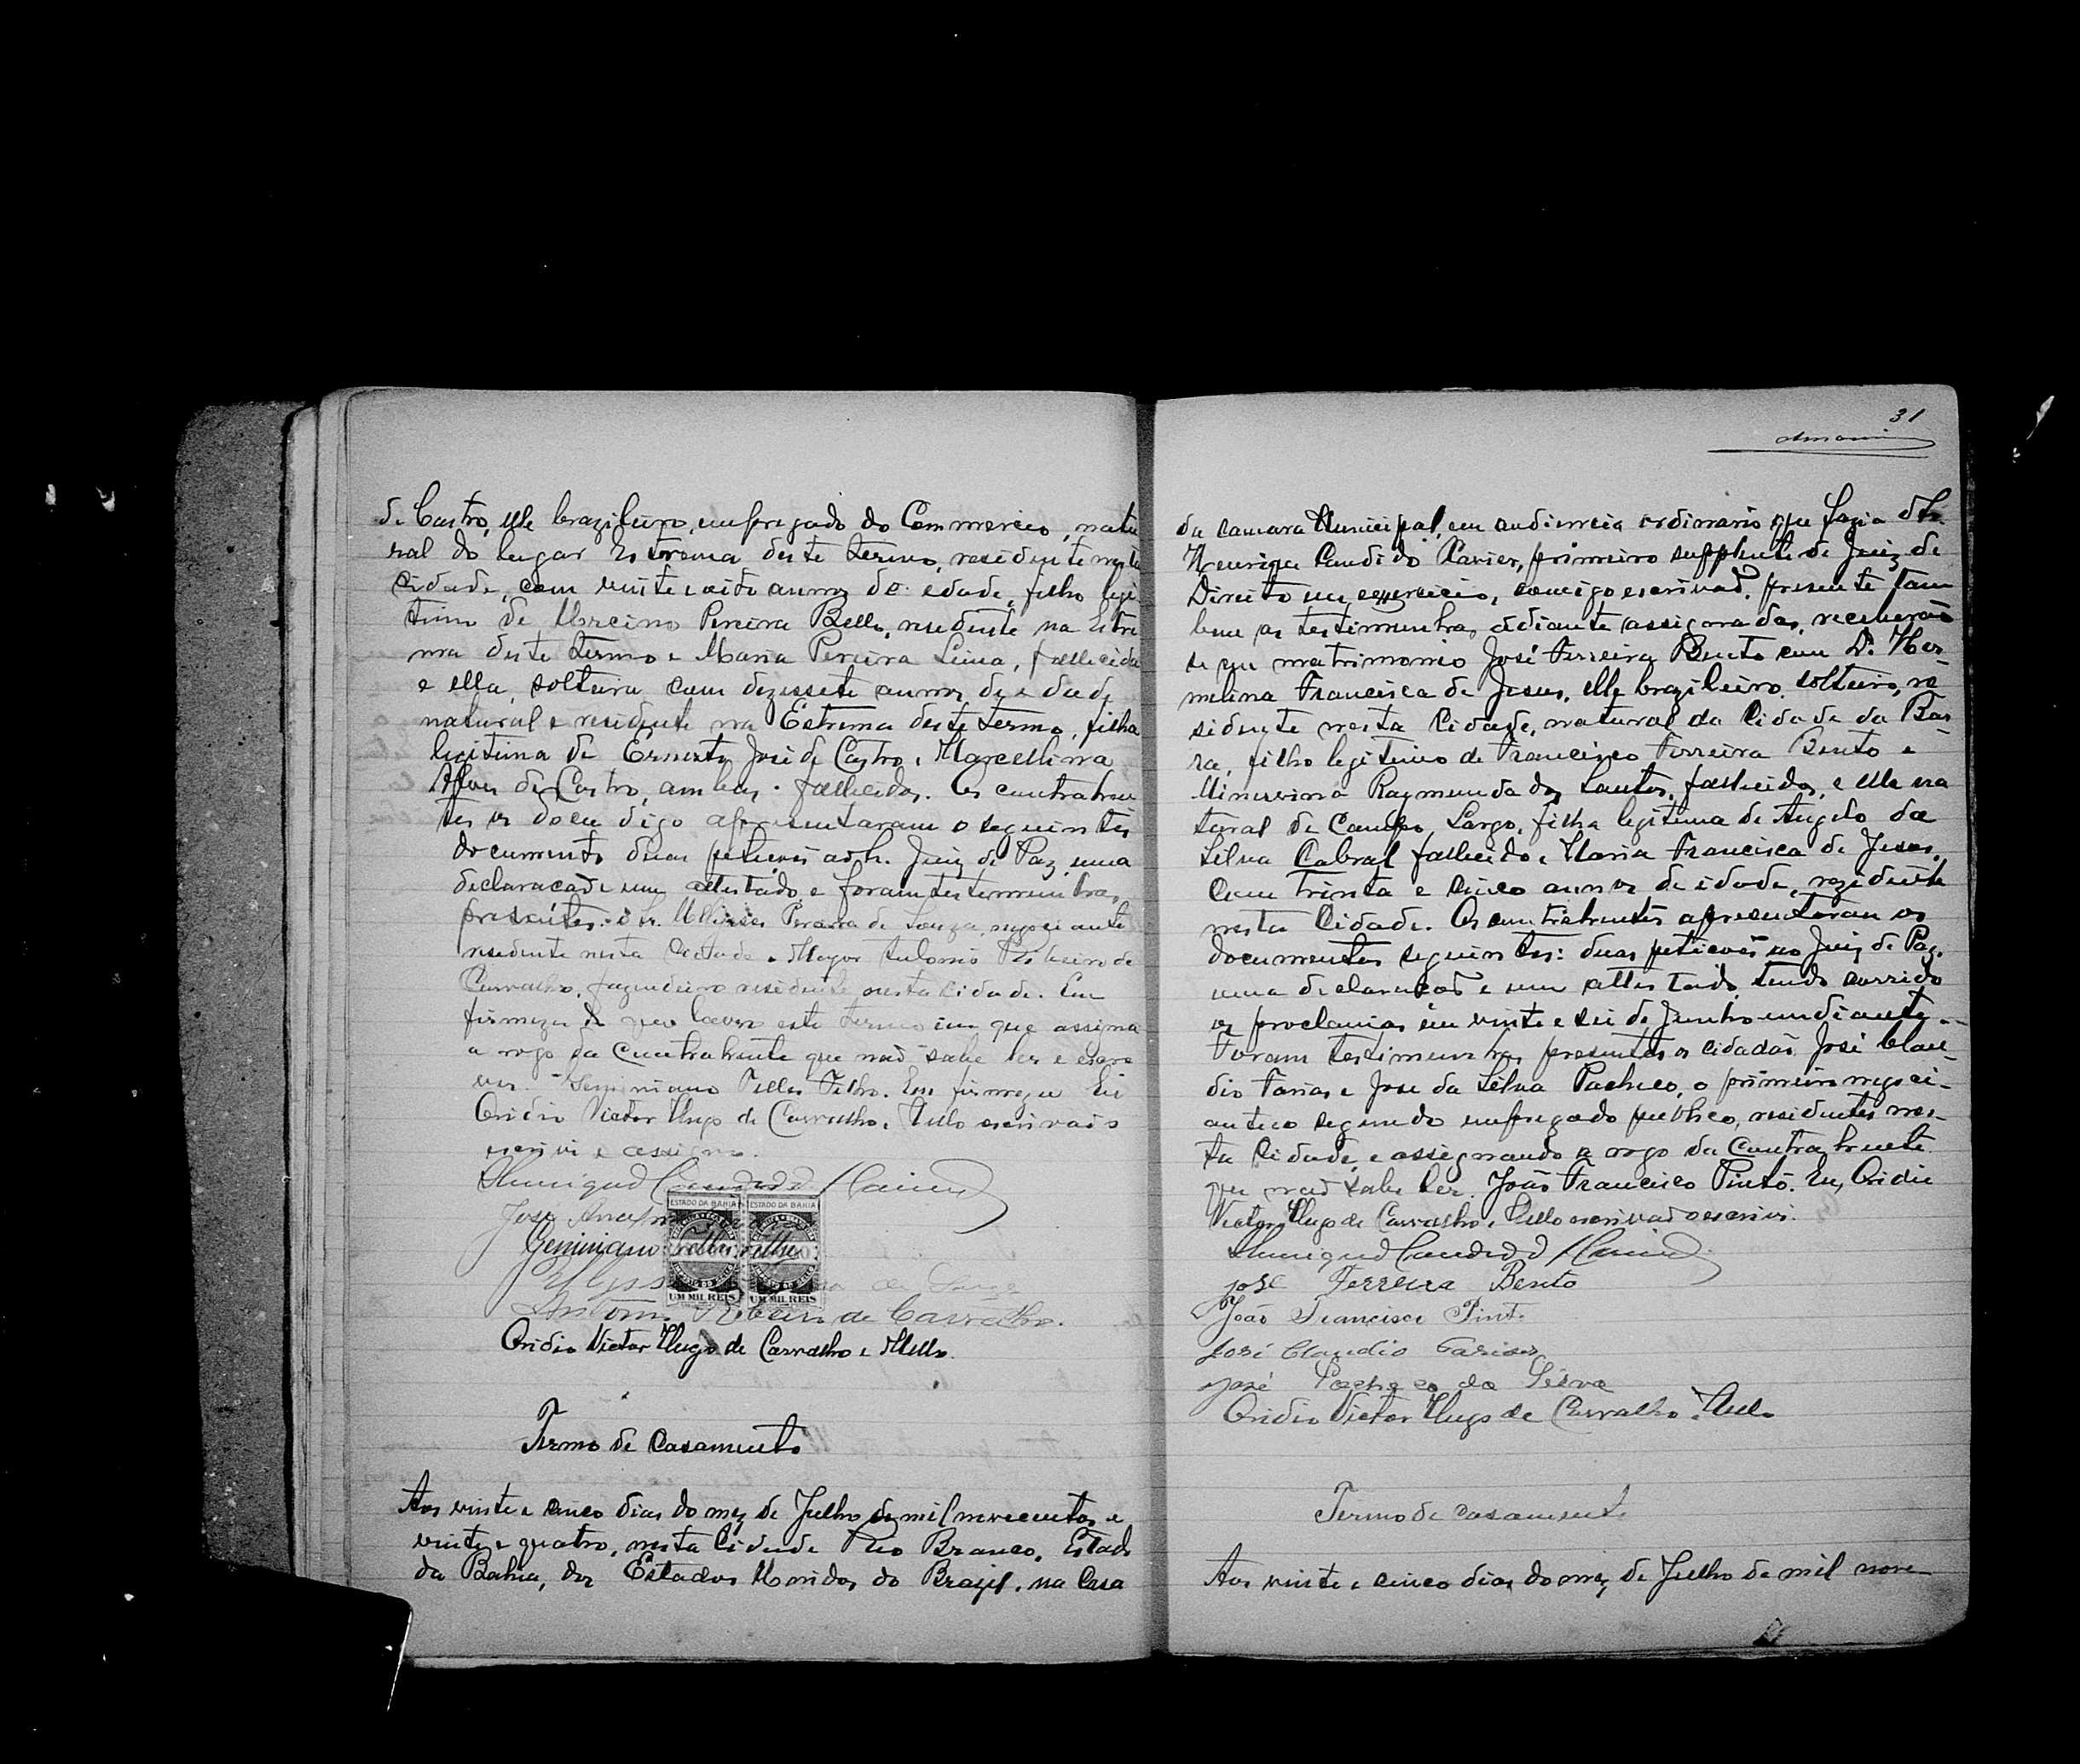 de Castro, elle brazileiro, empregado do Commercio, natu
ral do lugar Estrema deste termo, residente nesta
cidade, com vinte e oito annos de edade, filho legi
timo de Pereira Bello, residente na Estre
ma deste termo e Maria Pereira Lima, fallecida
e ella, solteira com dezessete annos de edade
natural e residente na Estrema deste termo, filha
legitima de Ernesto José de Castro e Marcellina
Alves de Castro, ambos fallecidos. Os contrahen
tes os docu digo apresentaram o seguintes
documento duas petições ao Sr. Juiz de Paz, uma
declaração e um attestado e foram testemunhas
presentes: o Sr. Pereira de Souza, negociante
residente nesta Cidade e Major Antonio Ribeiro de
Carvalho, fazendeiro residente nesta cidade. Em
firmeza do que lavro este termo em que assigna
a rogo da Contrahente que não sabe ler e escre
ver Geminiano Telles Filho. Em firmeza Eu
Ovidio Victor Hugo de Carvalho e Mello escrivão o
escrivi e assigno.
José
Geminiano Telles Filho
ESTADO DA BAHIA ESTADO DA BAHIA
UM MIL REIS UM MIL REIS
Antonio Ribeiro de Carvalho.
Ovidio Victor Hugo de Carvalho e Mello.
Termo de Casamento
Aos vinte e cinco dias do mez de Julho de mil novecentos e
vinte e quatro, nesta Cidade Rio Branco, Estado
da Bahia, dos Estados Unidos do Brazil, na Casa
31
da camara Municipal, em audiencia ordinaria que fazia o Sr.
Henrique Candido Xavier, primeiro supplente de Juiz de
Direito em exercicio, comigo escrivão, presente tam
bem as testimunhas adiante assignadas, receberão
se em matrimonio José Ferreira Bento com D. Her-
melina Francisca de Jesus, elle brazileiro, solteiro, re
sidente nesta Cidade, natural da Cidade da Bar
ra, filho legitimo de Francisco Ferreira Bento e
Minervina Raymunda dos Santos, fallecidos, e ella na
tural de Campo Largo, filha legitima de Angelo da
Silva Cabral fallecido e Maria Francisca de Jesus,
com trinta e cinco annos de idade, rezidente
nesta Cidade. Os contrahentes apresentaram os
documentos seguintes: duas petições ao Juiz de Paz,
uma declaração e um attestado, tendo corrido
os proclamas em vinte e sei de Junho
Foram testimunhas presentes os cidadãos José Clau-
dio Farias e José da Silva Pacheco, o primeiro negoci-
ante e o segundo empregado publico, residentes nes-
ta Cidade, e assignando a rogo da Contrahente
que não sabe ler. João Francisco Pinto. Eu, Ovidio
Victor Hugo de Carvalho e Mello escrivão o escrivi.
José Ferreira Bento
João Francisco Pinto
José Claudio Farias
José Pacheco da Silva
Ovidio Victor Hugo de Carvalho e Mello
Termo de casamento
Aos vinte e cinco dias do mez de Julho de mil nove-